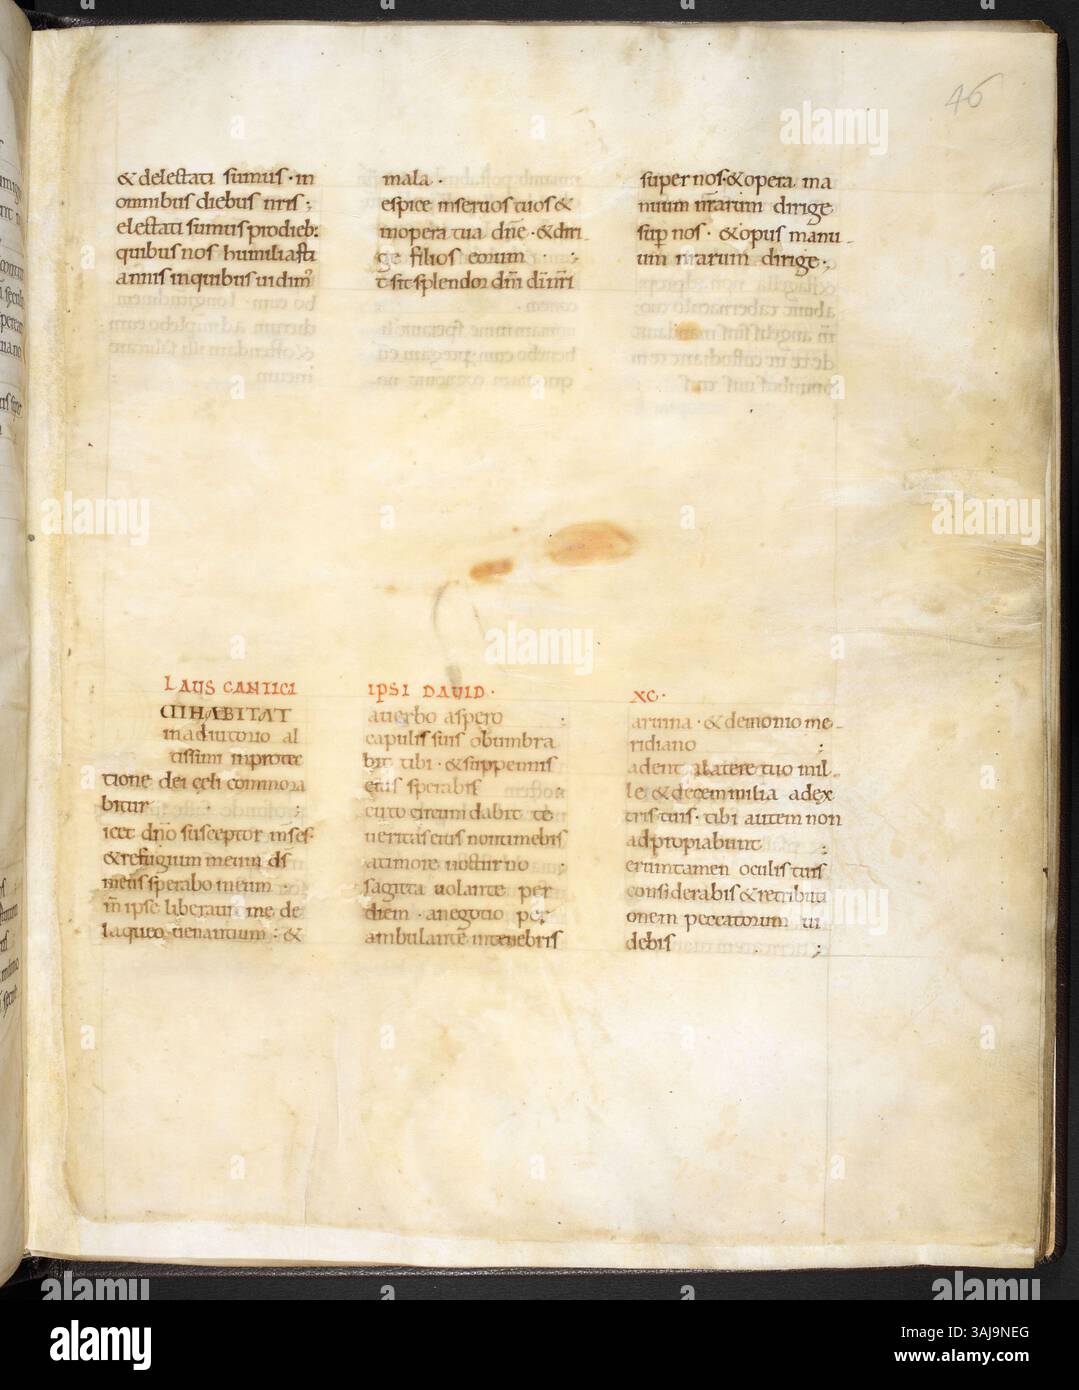 46
& delectati sumus · in
omnibus diebus nris ;
electati sumus pro dieb:
quibus nos humiliasti
annis in quibus uidim
mala ·
espice inseruos tuos &
inopera tua dn̄e · & diri
ge filios eorum · ;
t sit splendor dn̄i dī nr̄i
super nos · & opera ma
nuum nr̄arum dirige
sup nos · & opus manu
um nr̄arum dirige ;
LAUS CANTICI
UIHABITAT
inadiutorio al
tissimi inprotec
tione dei cęli commora
bitur · ;
icet dn̄o susceptor m̄ es
& refugium meum ds
meus sperabo ineum ·
m̄ ipse liberauit me de
laqueo uenantium · &
IPSI DAUID ·
auerbo aspero ;
capulis suis obumbra
bit tibi · & suppennis
eius sperabis
cuto circumdabit te
ueritas eius nontimebis
atimore nocturno ;
sagitta uolante per
diem · anegotio per
ambulante intenebris
XC ·
aruina · & demonio me
ridiano ;
adent alatere tuo mil
le & decem milia adex
tris tuis · tibi autem non
adpropiabunt ;
eruntamen oculis tuis
considerabis & retributi
onem peccatorum ui
debis ;
alamy
alamy
Image ID: 3AJ9NEG
www.alamy.com